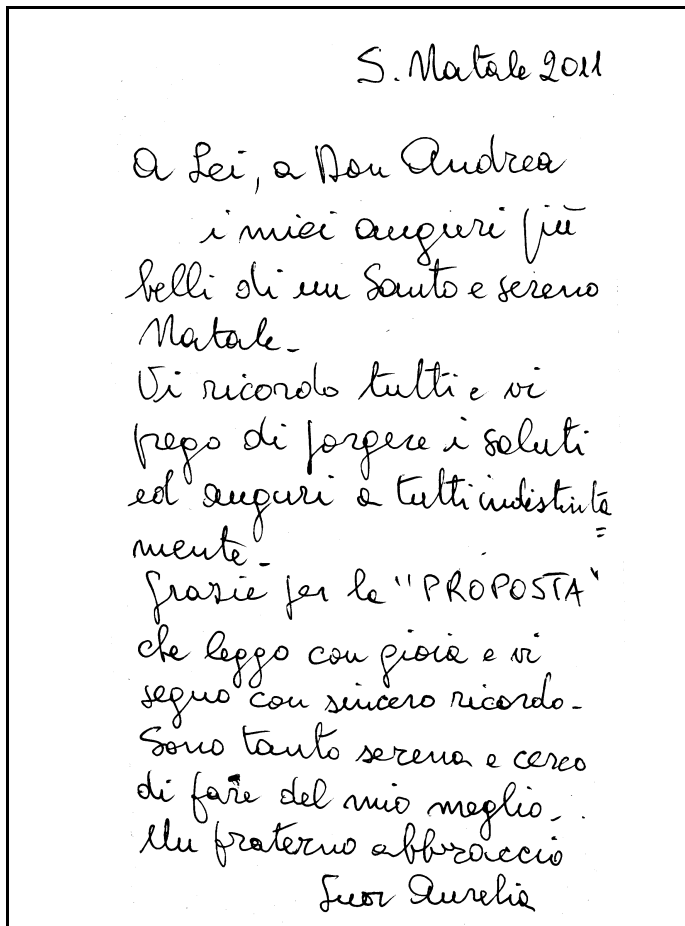 S. Natale 2011
A Lei, a Don Andrea
i miei auguri più
belli di un Santo e sereno
Natale.
Vi ricordo tutti e vi
prego di porgere i saluti
ed auguri a tutti indistinta=
mente.
Grazie per la "PROPOSTA"
che leggo con gioia e vi
seguo con sincero ricordo.
Sono tanto serena e cerco
di fare del mio meglio.
Un fraterno abbraccio
Suor Aurelia